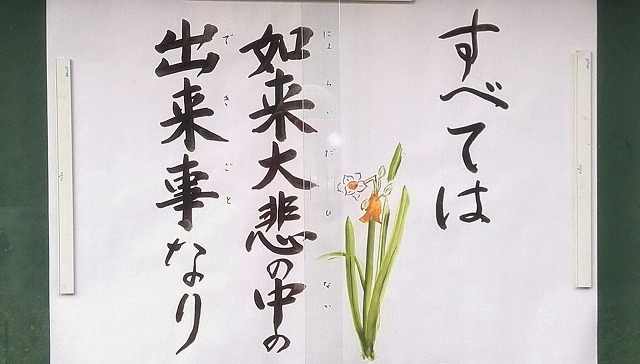 すべては
如来大悲の中の
にょらいだいひ なか
出来事なり
できごと